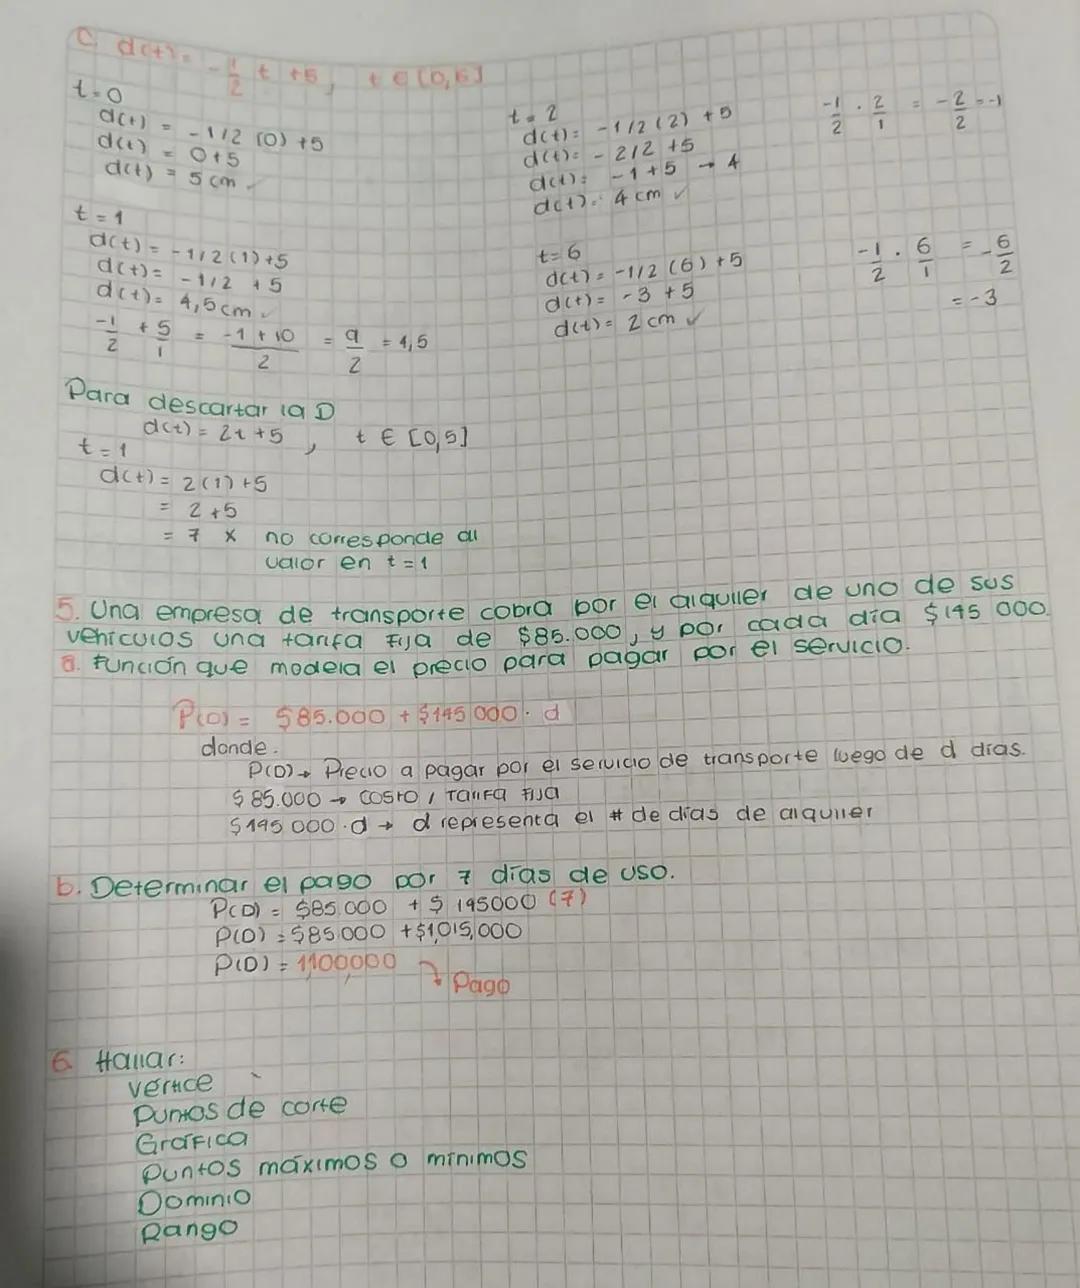 C. d(t)= -1/2 t +5, t ∈ [0,6]
t=0
d(t) = -1/2 (0) +5
d(t) = 0+5
d(t) = 5 cm ✓
t=1
d(t) = -1/2 (1)+5
d(t) = -1/2 +5
d(t) = 4,5 cm ✓
-1/2 + 5/1 = -1+10/2 = 9/2 = 4,5
t=2
d(t)= -1/2 (2) +5
d(t)= -2/2 +5
d(t)= -1+5 → 4
d(t)= 4 cm ✓
-1/2 · 2/1 = -2/2 = -1
t=6
d(t) = -1/2 (6) +5
d(t) = -3 +5
d(t) = 2 cm ✓
-1/2 · 6/1 = -6/2
= -3
Para descartar la D
d(t) = 2t+5, t ∈ [0,5]
t=1
d(t) = 2(1)+5
= 2+5
= 7 x no corresponde al
valor en t=1
5. Una empresa de transporte cobra por el alquiler de uno de sus
vehículos una tarifa fija de $85.000, y por cada día $145 000.
a. Función que modela el precio para pagar por el servicio.
P(D) = $85.000 + $145 000 · d
donde.
P(D) → Precio a pagar por el servicio de transporte luego de d días.
$85.000 → costo, Tarifa Fija
$145 000 · d → d representa el # de días de alquiler
b. Determinar el pago por 7 días de uso.
P(D) = $85.000 + $ 145000 (7)
P(D) = $85.000 + $1,015,000
P(D) = 1,100,000 → Pago
6 Hallar:
vértice
Puntos de corte
Gráfica
Puntos máximos o mínimos
Dominio
Rango